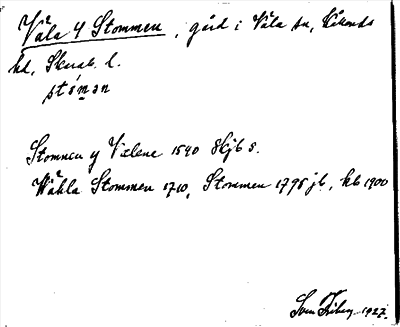 Våla 4 Stommen, gård i Våla sn, Håbonds
hd, Skarab. l.
stómən
Stomnen y Vælene 1540 Skjb 3.
Wåhla Stommen 1710, Stommen 1795 jb, kb 1900
Sven Friberg 1927.